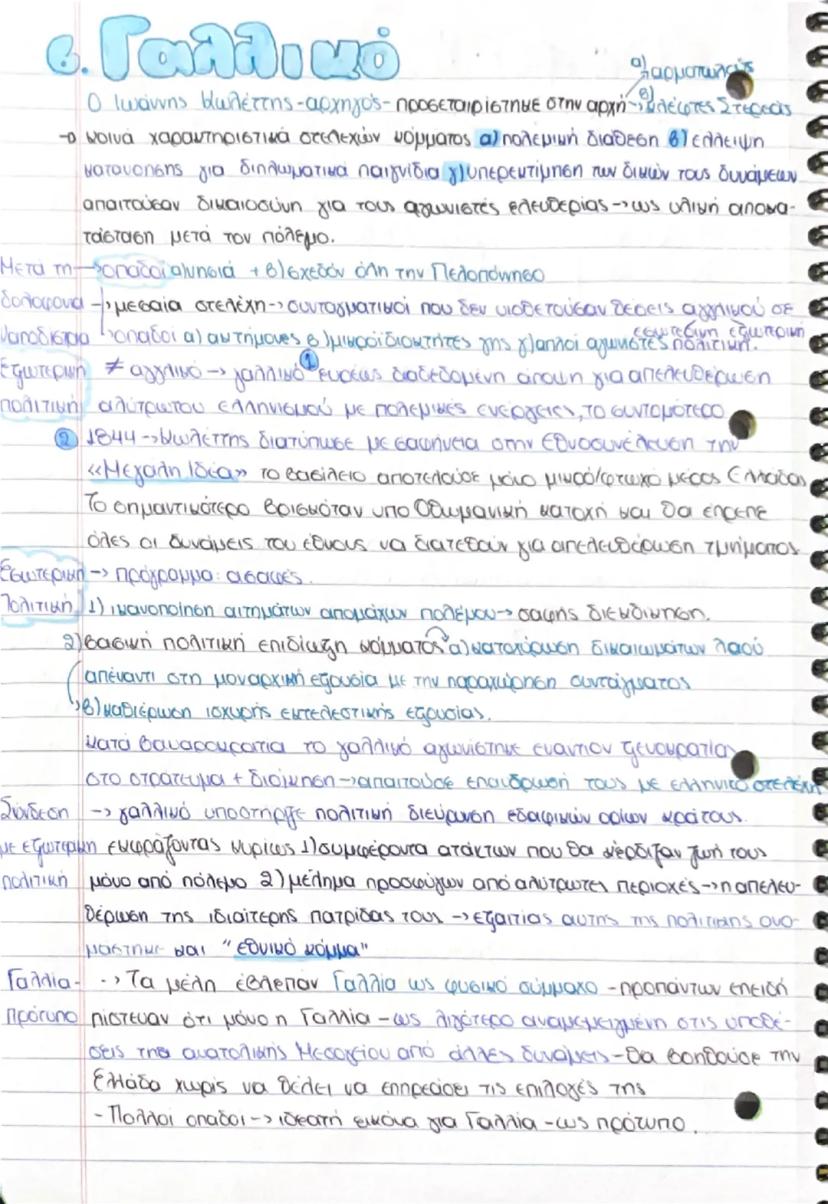 6. Γαλλικό
α) αρματωλούς
Ο Ιωάννης Κωλέττης - αρχηγός - προσεταιρίστηκε στην αρχή → β) κλέφτες Στερεάς
→ κοινά χαρακτηριστικά στελεχών κόμματος α) πολεμική διάθεση β) έλλειψη
κατανόησης για διπλωματικά παιγνίδια γ) υπερεκτίμηση των δικών τους δυνάμεων
απαιτούσαν δικαιοσύνη για τους αγωνιστές ελευθερίας → ως υλική αποκα-
τάσταση μετά τον πόλεμο.
Μετά τη → οπαδοί α) νησιά + β) σχεδόν όλη την Πελοπόννησο
δολοφονία → μεσαία στελέχη → συνταγματικοί που δεν υιοθετούσαν θέσεις αγγλικού σε
εσωτερική εξωτερική
Καποδίστρια → οπαδοί α) ακτήμονες β) μικροϊδιοκτήτες γης γ) απλοί αγωνιστές πολιτική.
Εξωτερική ≠ αγγλικό → γαλλικό 1 ευρέως διαδεδομένη άποψη για απελευθέρωση
πολιτική αλύτρωτου ελληνισμού με πολεμικές ενέργειες, το συντομότερο
2 1844 → Κωλέττης διατύπωσε με σαφήνεια στην Εθνοσυνέλευση την
«Μεγάλη Ιδέα» το βασίλειο αποτελούσε μόνο μικρό/φτωχό μέρος Ελλάδας
Το σημαντικότερο βρισκόταν υπό Οθωμανική κατοχή και θα έπρεπε
όλες οι δυνάμεις του έθνους να διατεθούν για απελευθέρωση τμήματος
Εσωτερική → πρόγραμμα: ασαφές.
Πολιτική 1) ικανοποίηση αιτημάτων απομάχων πολέμου → σαφής διεκδίκηση.
2) βασική πολιτική επιδίωξη κόμματος α) κατοχύρωση δικαιωμάτων λαού
απέναντι στη μοναρχική εξουσία με την παραχώρηση συντάγματος
β) καθιέρωση ισχυρής εκτελεστικής εξουσίας.
Κατά βαυαροκρατία το γαλλικό αγωνίστηκε εναντίον ξενοκρατίας
στο στράτευμα + διοίκηση → απαιτούσε επάνδρωσή τους με ελληνικά στελέχη
Σύνδεση → γαλλικό υποστήριξε πολιτική διεύρυνση εδαφικών ορίων κράτους
με εξωτερική εκφράζοντας κυρίως 1) συμφέροντα ατάκτων που θα κέρδιζαν ζωή τους
πολιτική μόνο από πόλεμο 2) μέλημα προσφύγων από αλύτρωτες περιοχές → η απελευ-
θέρωση της ιδιαίτερης πατρίδας τους → εξαιτίας αυτής της πολιτικής ονο-
μάστηκε και "εθνικό κόμμα"
Γαλλία - → Τα μέλη έβλεπαν Γαλλία ως φυσικό σύμμαχο - προπάντων επειδή
πρότυπο πίστευαν ότι μόνο η Γαλλία - ως λιγότερο αναμεμειγμένη στις υποθέ-
σεις της ανατολικής Μεσογείου από άλλες δυνάμεις - θα βοηθούσε την
Ελλάδα χωρίς να θέλει να επηρεάσει τις επιλογές της
- Πολλοί οπαδοί → ιδεατή εικόνα για Γαλλία - ως πρότυπο.